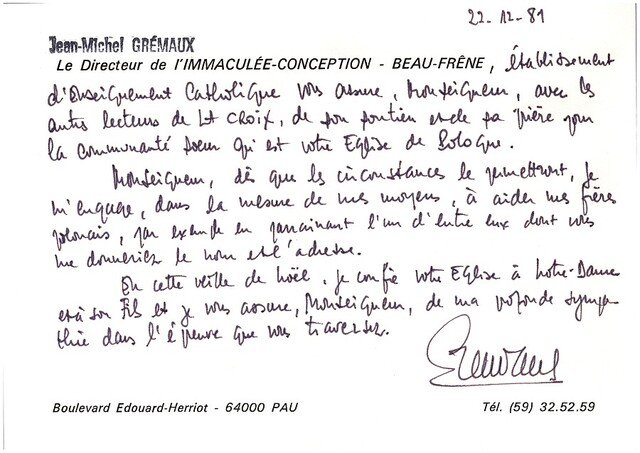 22-12-81
Jean-Michel GRÉMAUX
Le Directeur de l'IMMACULÉE-CONCEPTION - BEAU-FRÊNE, établissement
d'Enseignement Catholique vous assure, Monseigneur, avec les
autres lecteurs de LA CROIX, de son soutien et de sa prière pour
la communauté soeur qui est votre Eglise de Pologne.
Monseigneur, dès que les circonstances le permettront, je
m'engage, dans la mesure de mes moyens, à aider mes frères
polonais, par exemple en parrainant l'un d'entre eux dont vous
me donneriez le nom et l'adresse.
En cette veille de Noël, je confie votre Eglise à Notre-Dame
et à son Fils et je vous assure, Monseigneur, de ma profonde sympa-
thie dans l'épreuve que vous traversez.
Boulevard Edouard-Herriot - 64000 PAU
Tél. (59) 32.52.59